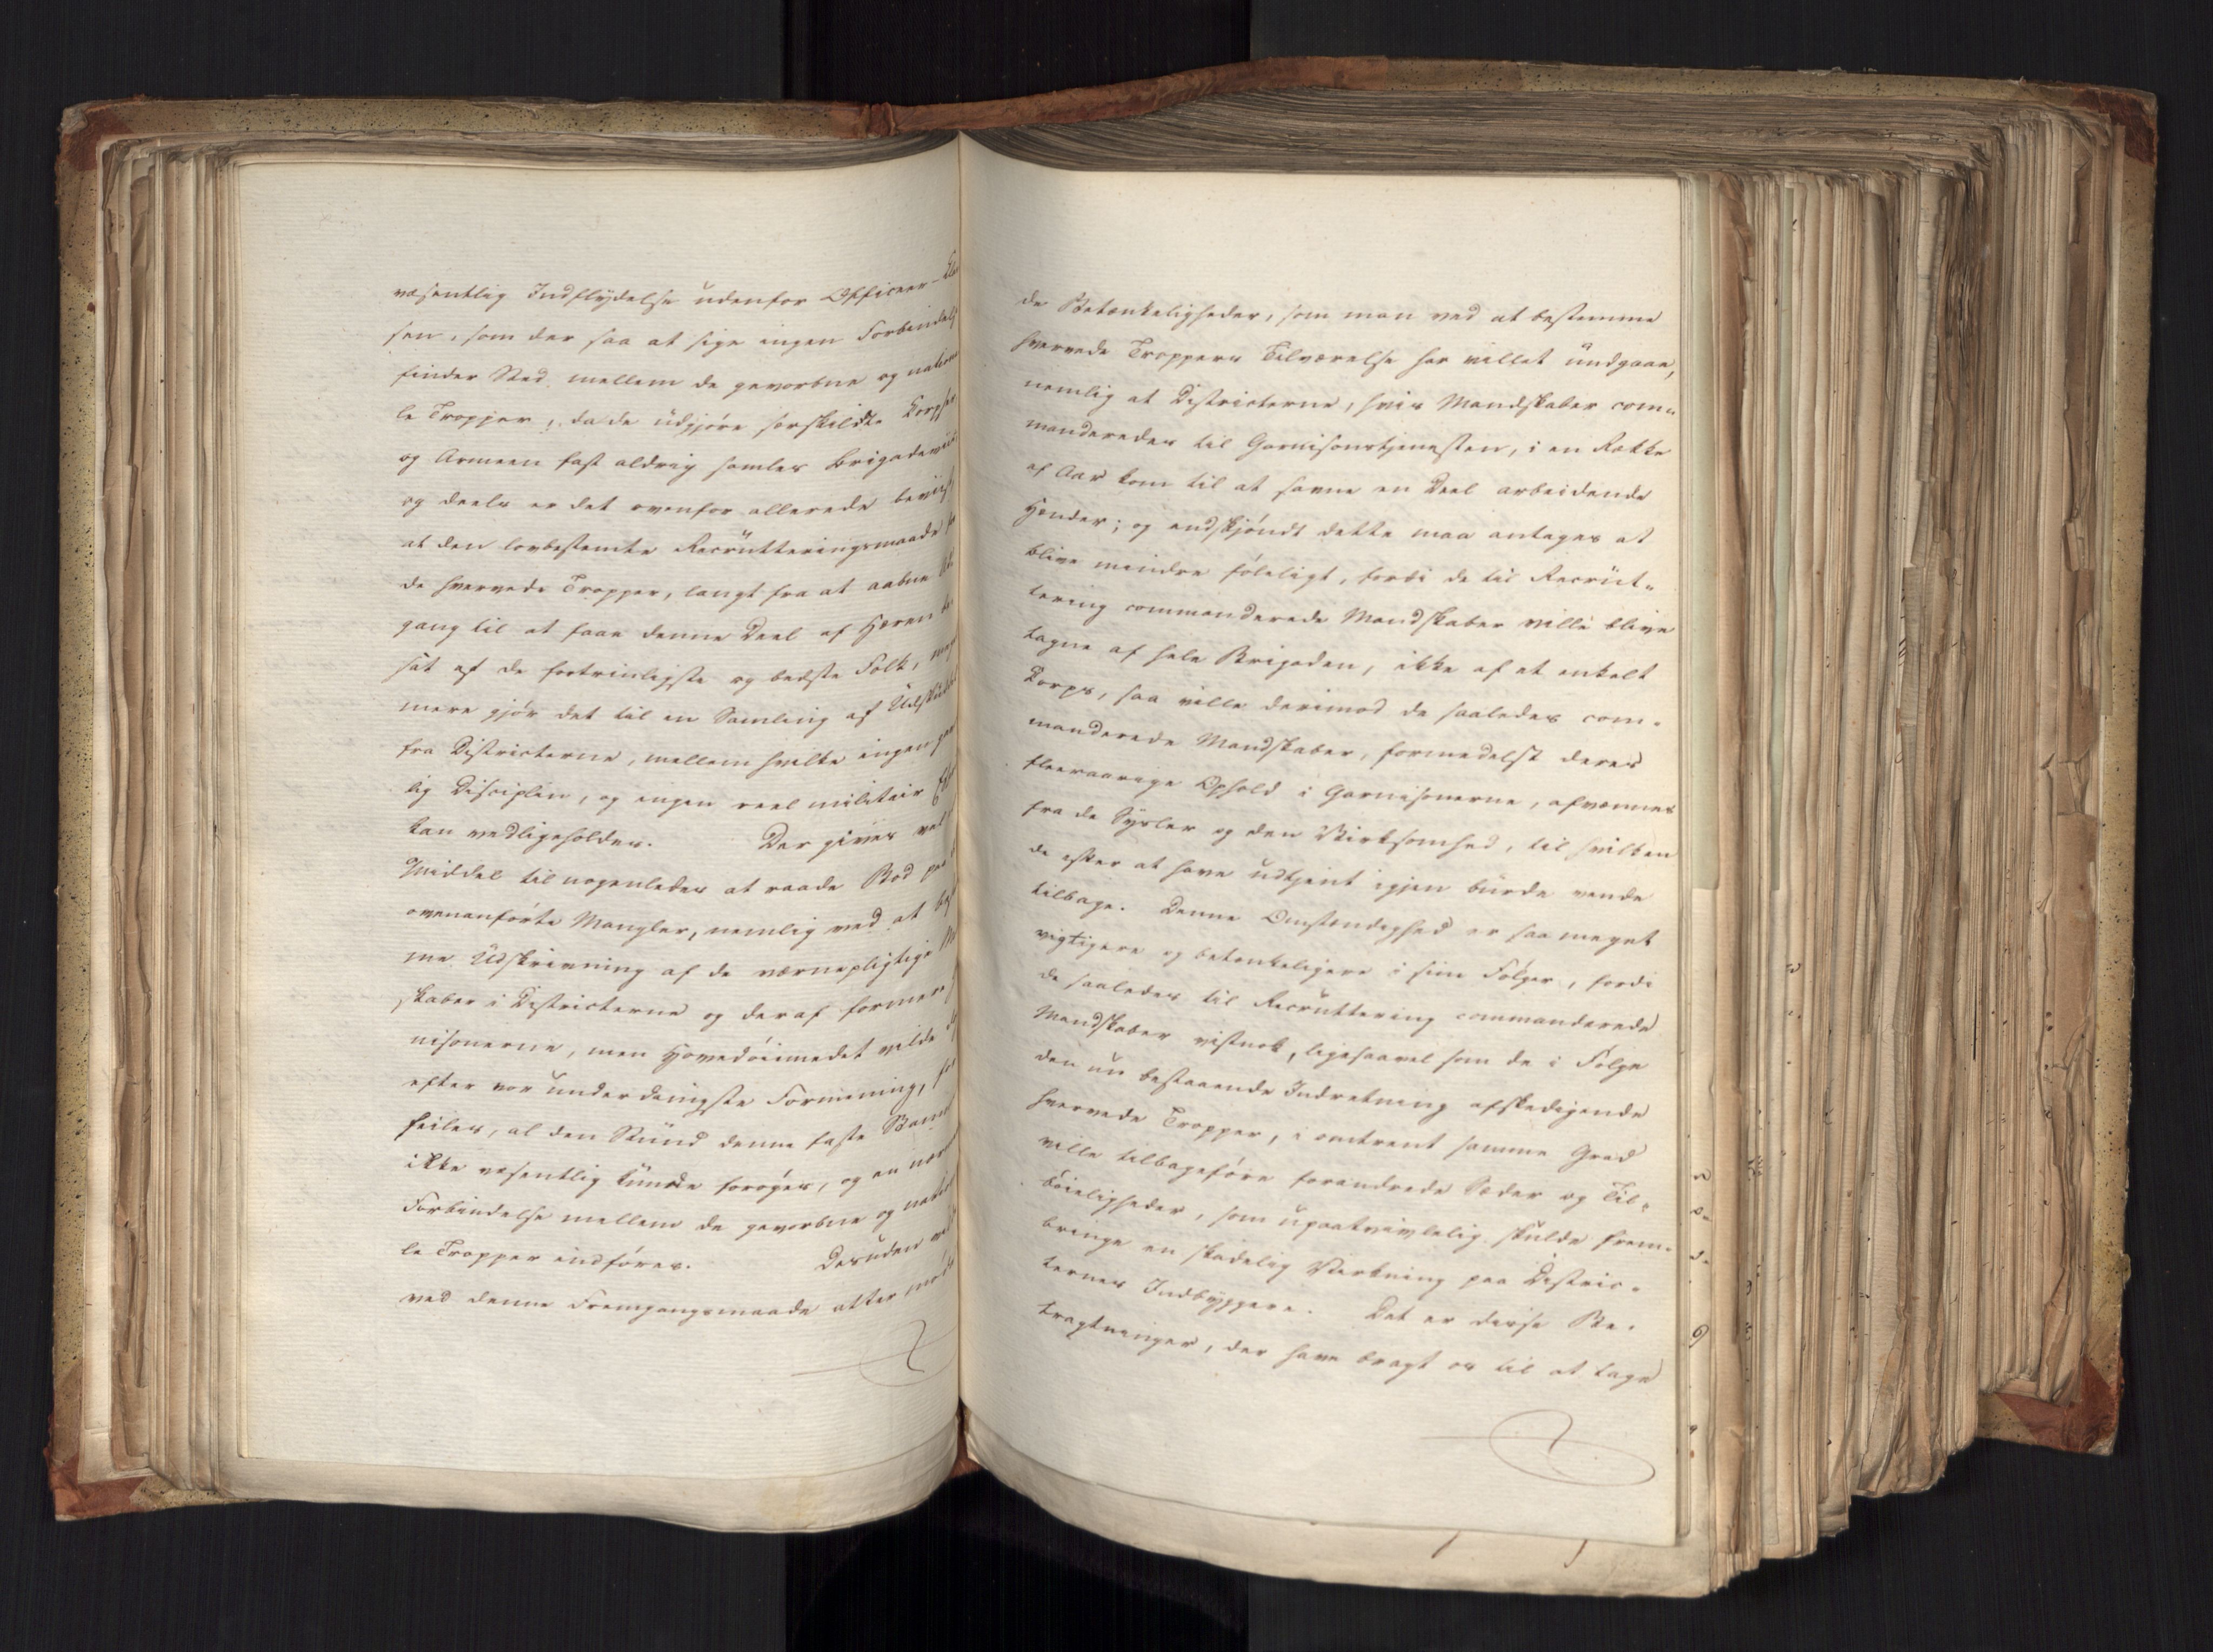 væsentlig Indflydelse udenfor Officeer-Cla
sen, som der saa at sige ingen Forbindels
finder Sted mellem de gevorbne og nationa
le Tropper, da de udgjøre særskildte Corpser
og Armeen fast aldrig samles Brigadeviis
og deels er det ovenfor allerede beviist
at den lovbestemte Recrutteringsmaade for
de hvervede Tropper, langt fra at aabne
gang til at faae denne Deel af Hæren be
sat af de fortrinligste og bedste Folk, meg
mere gjør det til en Samling af Udskudet
fra Districterne, mellem hvilke ingen
lig Disciplin, og ingen reel militair
kan vedligeholdes. Der gives vel
Middel til nogenledes at raade Bod paa
ovenanførte Mangler, nemlig ved at
me Udskrivning af de værnepligtige
skaber i Districterne og deraf formere
nisonerne, men Hovedøiemedet vilde
efter vor underdanigste Formening, for
feiles, al den Stund denne faste Stamme
ikke væsentlig kunde forøges, og en nær
Forbindelse mellem de gevorbne og natio
le Tropper indføres. Desuden vil
ved denne Fremgangsmaade atter møde
de Betænkeligheder, som man ved at bestemme
hvervede Troppers Tilværelse har villet undgaae,
nemlig at Districterne, hvis Mandskaber com-
manderedes til Garnisonstjenesten, i en Række
af Aar kom til at savne en Deel arbeidende
Hænder; og endskjøndt dette maa antages at
blive mindre føleligt, fordi de til Recrut-
tering commanderede Mandskaber ville blive
tagne af hele Brigaden, ikke af et enkelt
Corps, saa ville derimod de saaledes com-
manderede Mandskaber, formedelst deres
fleeraarige Ophold i Garnisonerne, afvænnes
fra de Sysler og den Virksomhed, til hvilken
de efter at have udtjent igjen burde vende
tilbage. Denne Omstændighed er saa meget
vigtigere og betænkeligere i sine Følger, fordi
de saaledes til Recruttering commanderede
Mandskaber vistnok, ligesaavel som de i Følge
den nu bestaaende Indretning afskedigende
hvervede Tropper, i omtrent samme Grad
ville tilbageføre forandrede Sæder og Til-
bøieligheder, som upaatvivlelig skulde frem-
bringe en skadelig Virkning paa Distric-
ternes Indbyggere. Det er disse Be-
tragtninger, der have bragt os til at tage